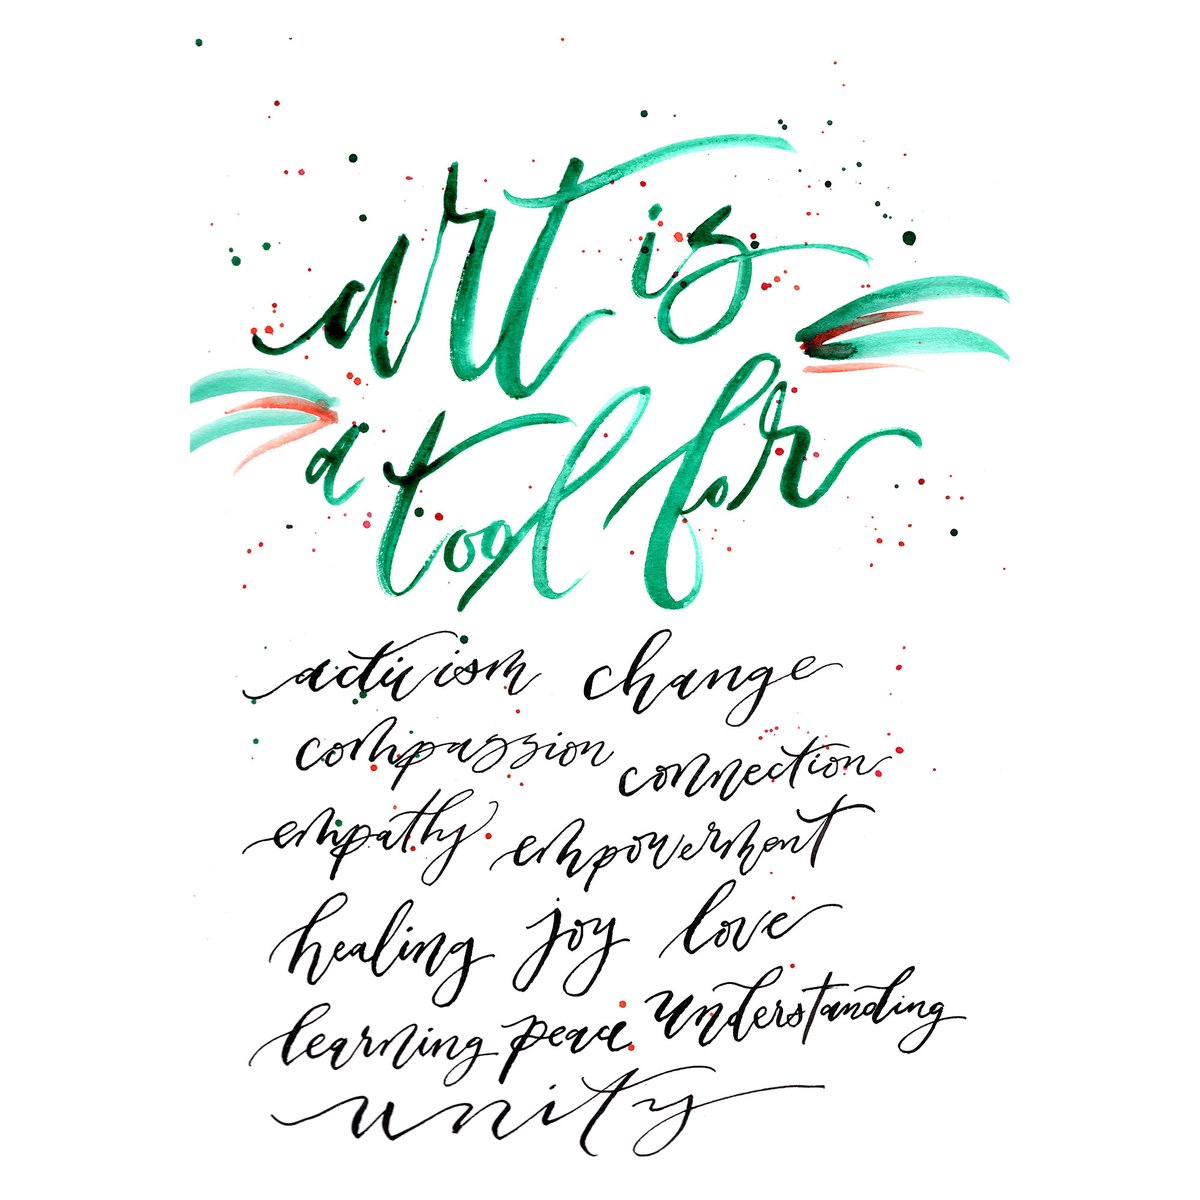 art is
a tool for
activism change
compassion connection
empathy empowerment
healing joy love
learning peace understanding
unity